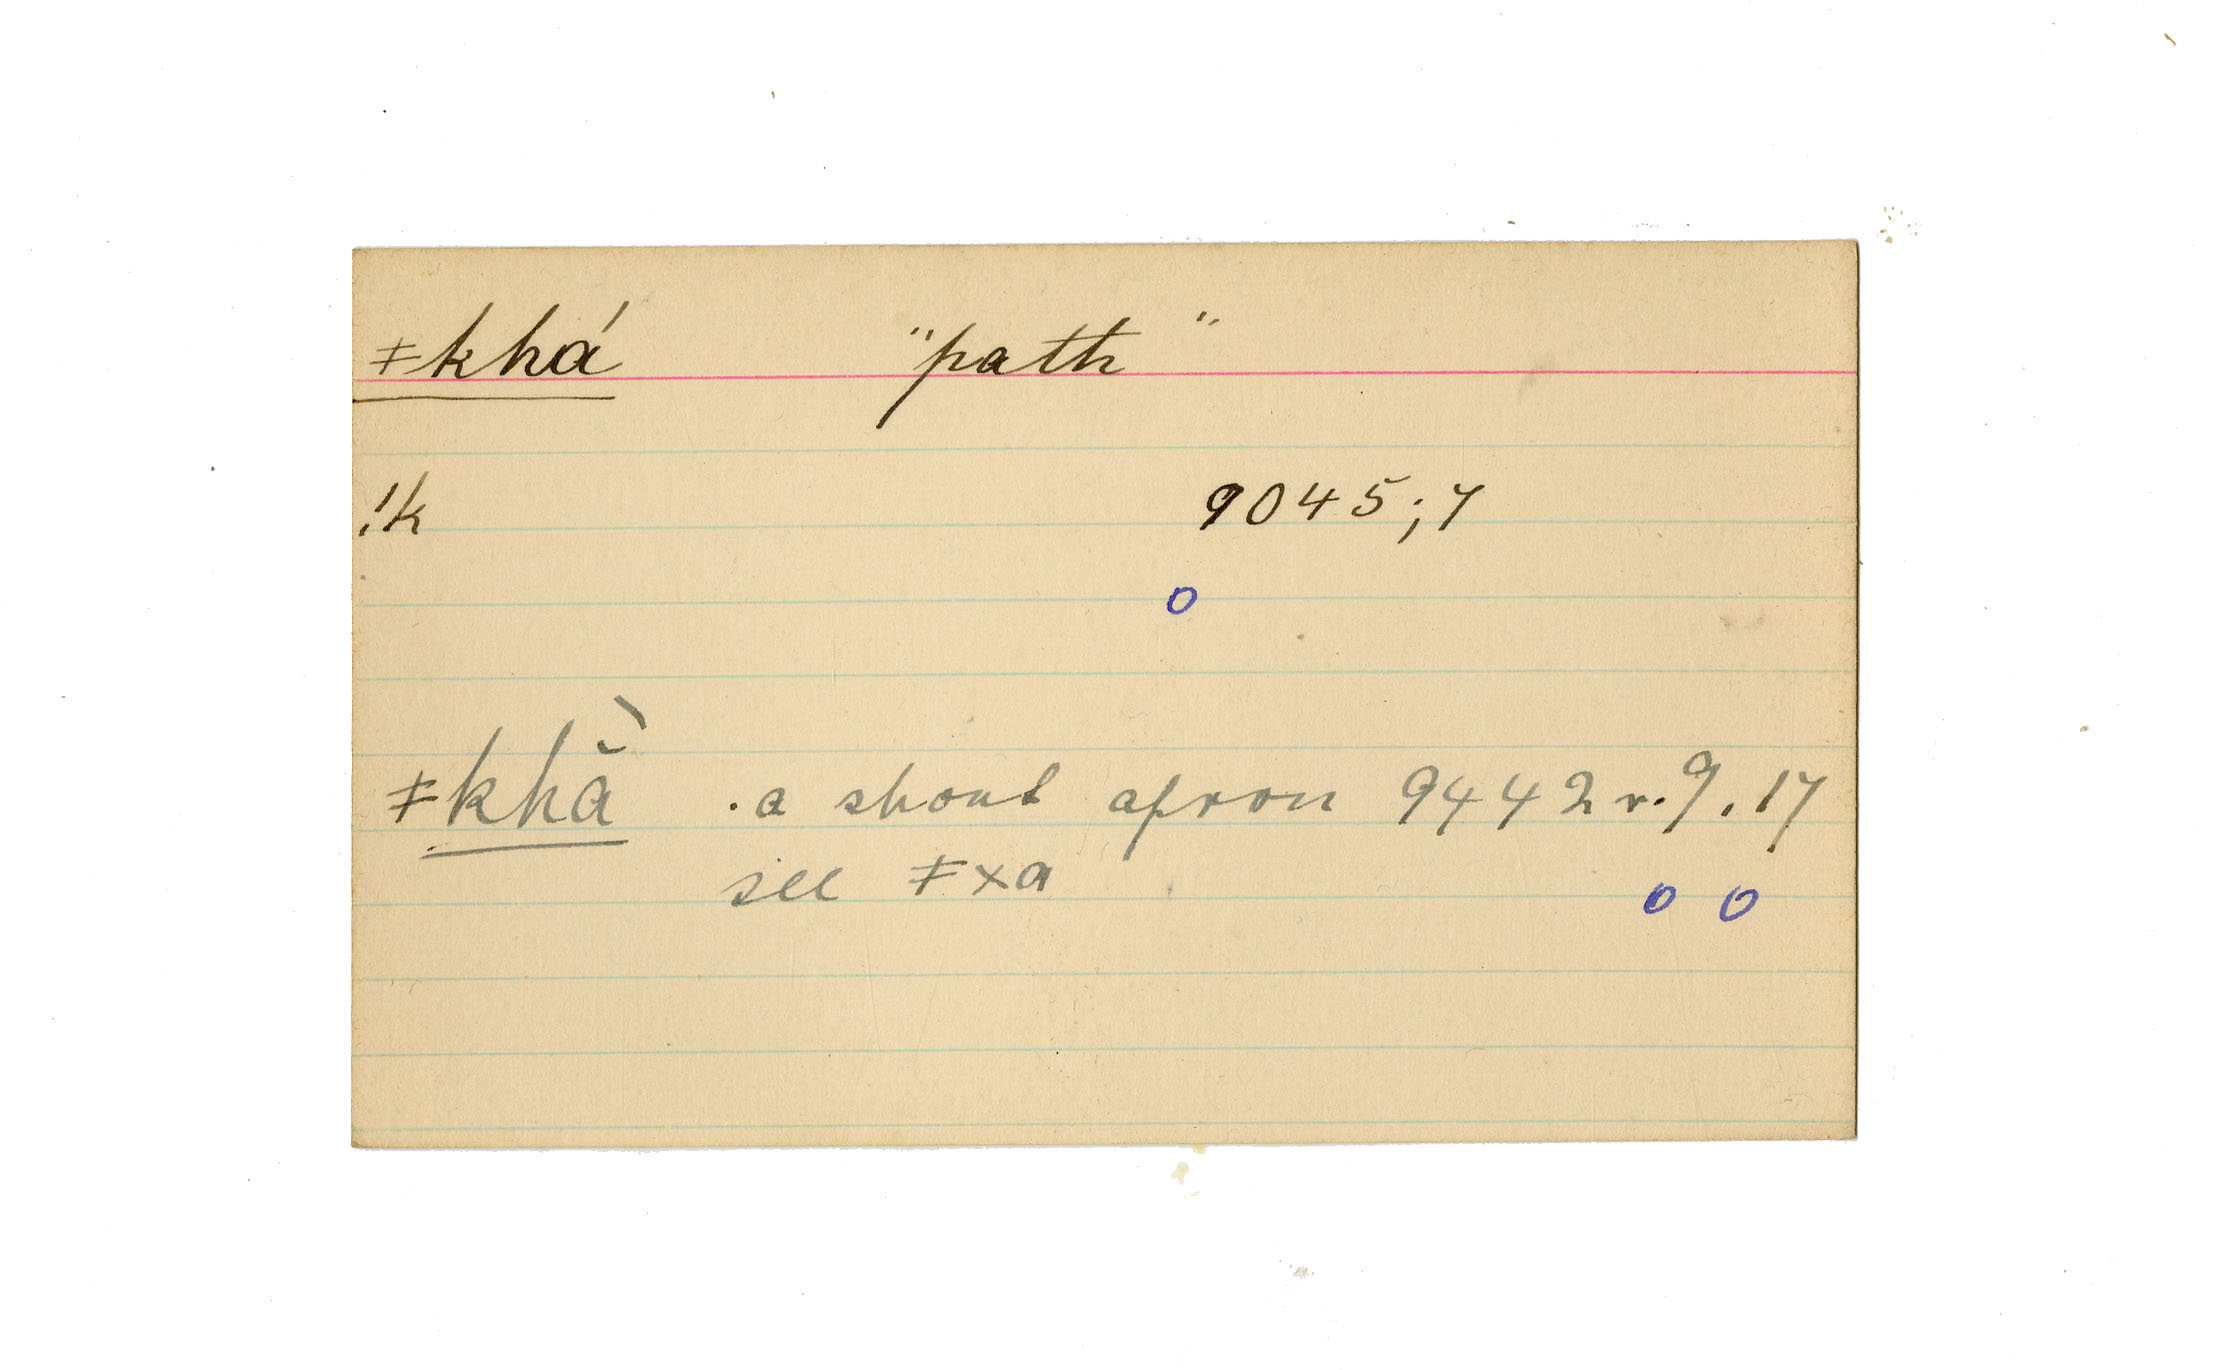 ǂkhá "path"
!k 9045;7
o
ǂkhằ . a short apron 9442 r. 9. 17
see ǂxa
o o